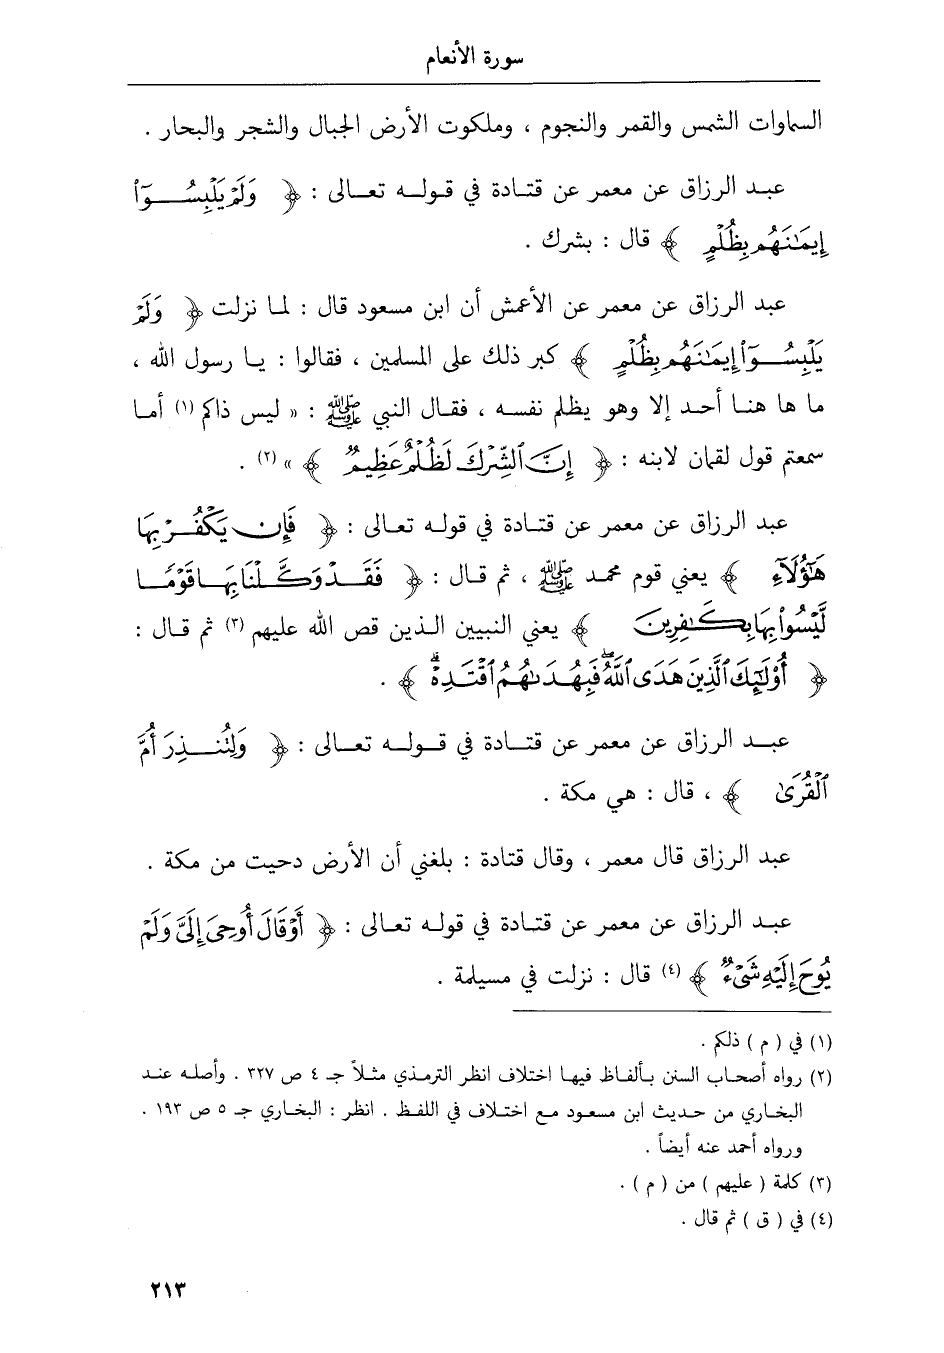 سورة الأنعام
السماوات الشمس والقمر والنجوم ، وملكوت الأرض الجبال والشجر والبحار .
عبد الرزاق عن معمر عن قتادة في قوله تعالى : ﴿ وَلَمْ يَلْبِسُوٓا۟
إِيمَـٰنَهُم بِظُلْمٍ ﴾ قال : بشرك .
عبد الرزاق عن معمر عن الأعمش أن ابن مسعود قال : لما نزلت ﴿ وَلَمْ
يَلْبِسُوٓا۟ إِيمَـٰنَهُم بِظُلْمٍ ﴾ كبر ذلك على المسلمين ، فقالوا : يا رسول الله ،
ما ها هنا أحد إلا وهو يظلم نفسه ، فقال النبي ﷺ : « ليس ذاكم (١) أما
سمعتم قول لقمان لابنه : ﴿ إِنَّ ٱلشِّرْكَ لَظُلْمٌ عَظِيمٌ ﴾ » (٢) .
عبد الرزاق عن معمر عن قتادة في قوله تعالى : ﴿ فَإِن يَكْفُرْ بِهَا
هَـٰٓؤُلَآءِ ﴾ يعني قوم محمد ﷺ ، ثم قال : ﴿ فَقَدْ وَكَّلْنَا بِهَا قَوْمًا
لَّيْسُوا۟ بِهَا بِكَـٰفِرِينَ ﴾ يعني النبيين الذين قص الله عليهم (٣) ثم قال :
﴿ أُو۟لَـٰٓئِكَ ٱلَّذِينَ هَدَى ٱللَّهُ ۖ فَبِهُدَىٰهُمُ ٱقْتَدِهْ ۗ ﴾ .
عبد الرزاق عن معمر عن قتادة في قوله تعالى : ﴿ وَلِتُنذِرَ أُمَّ
ٱلْقُرَىٰ ﴾ ، قال : هي مكة .
عبد الرزاق قال معمر ، وقال قتادة : بلغني أن الأرض دحيت من مكة .
عبد الرزاق عن معمر عن قتادة في قوله تعالى : ﴿ أَوْ قَالَ أُوحِىَ إِلَىَّ وَلَمْ
يُوحَ إِلَيْهِ شَىْءٌ ﴾ (٤) قال : نزلت في مسيلمة .
(١) في ( م ) ذلكم .
(٢) رواه أصحاب السنن بألفاظ فيها اختلاف انظر الترمذي مثلاً جـ ٤ ص ٣٢٧ . وأصله عند
البخاري من حديث ابن مسعود مع اختلاف في اللفظ . انظر : البخاري جـ ٥ ص ١٩٣ .
ورواه أحمد عنه أيضاً .
(٣) كلمة ( عليهم ) من ( م ) .
(٤) في ( ق ) ثم قال .
٢١٣